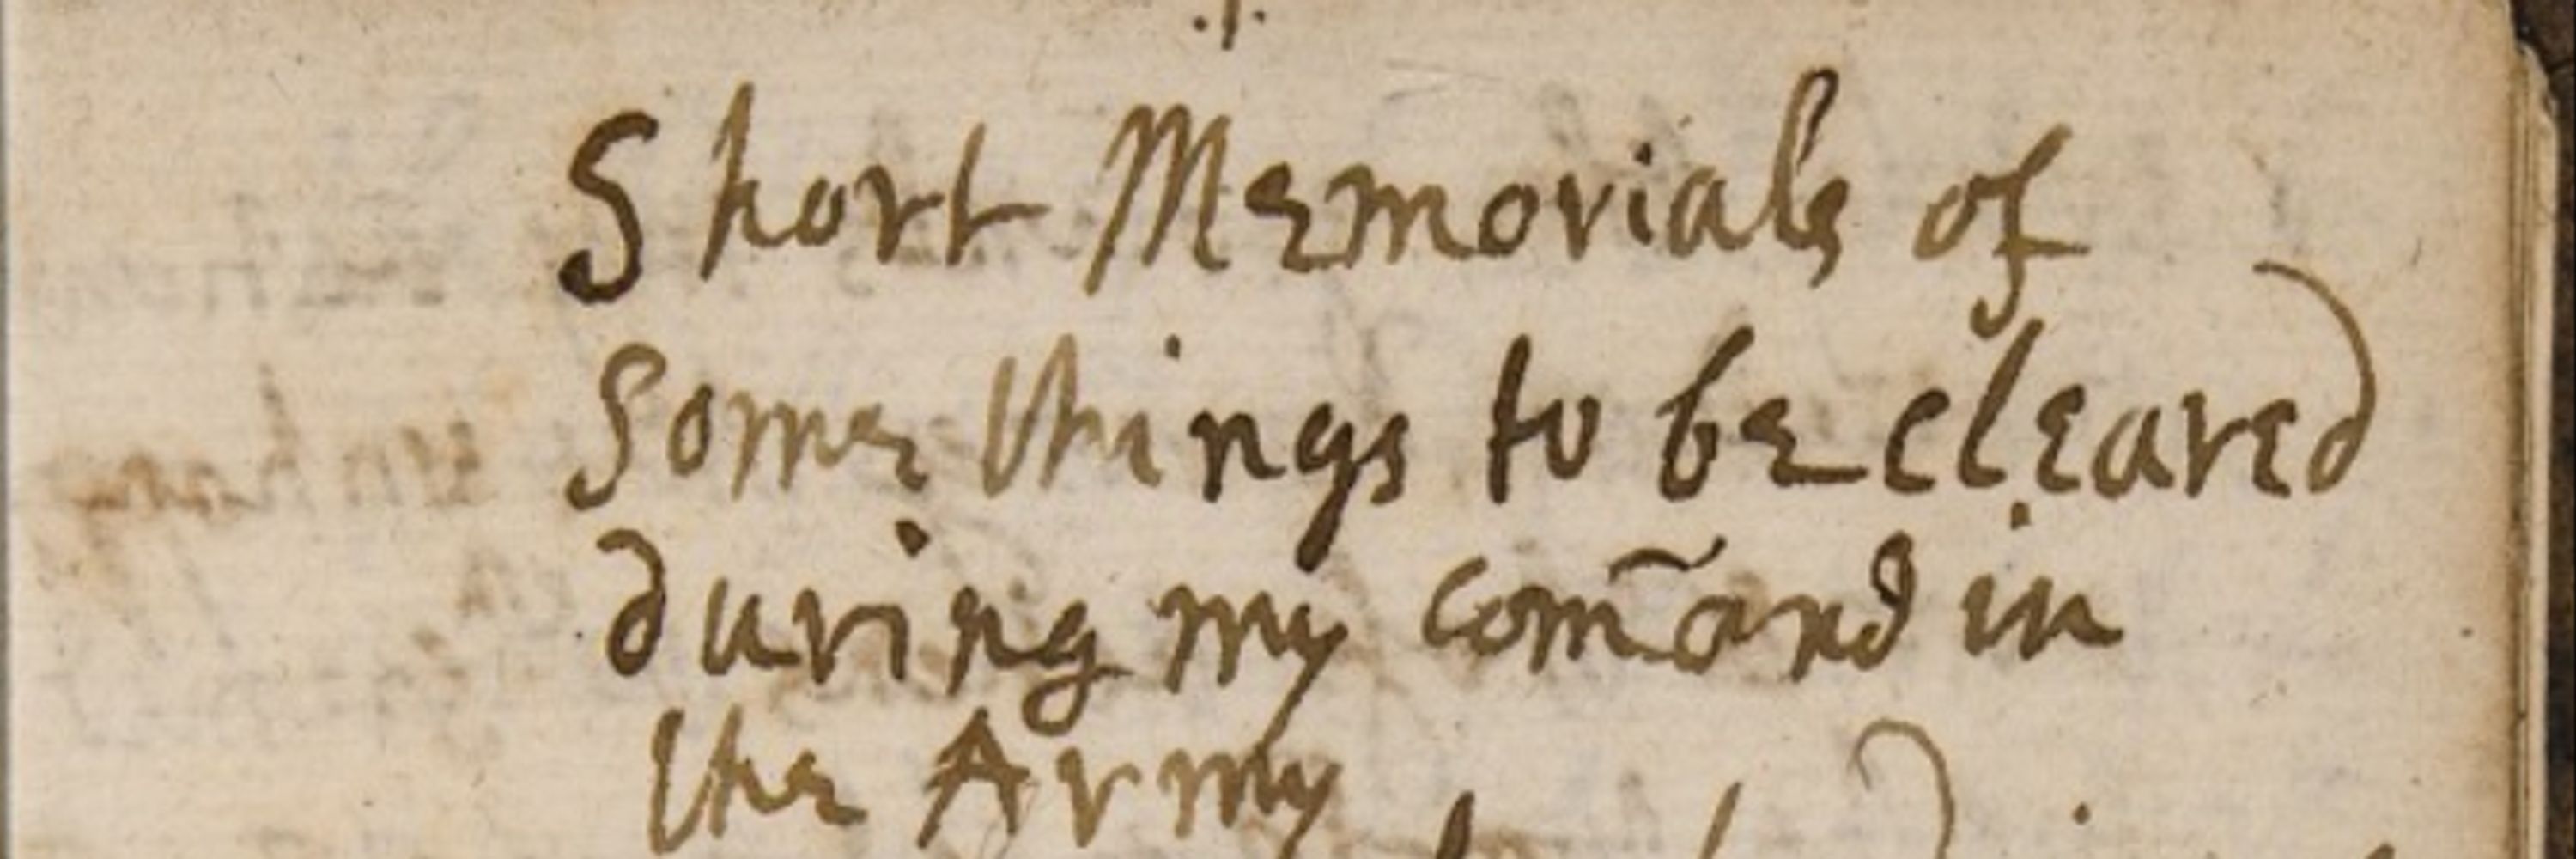 .1.
Short Memorials of
Some things to be cleared
during my com̃and in
the Army